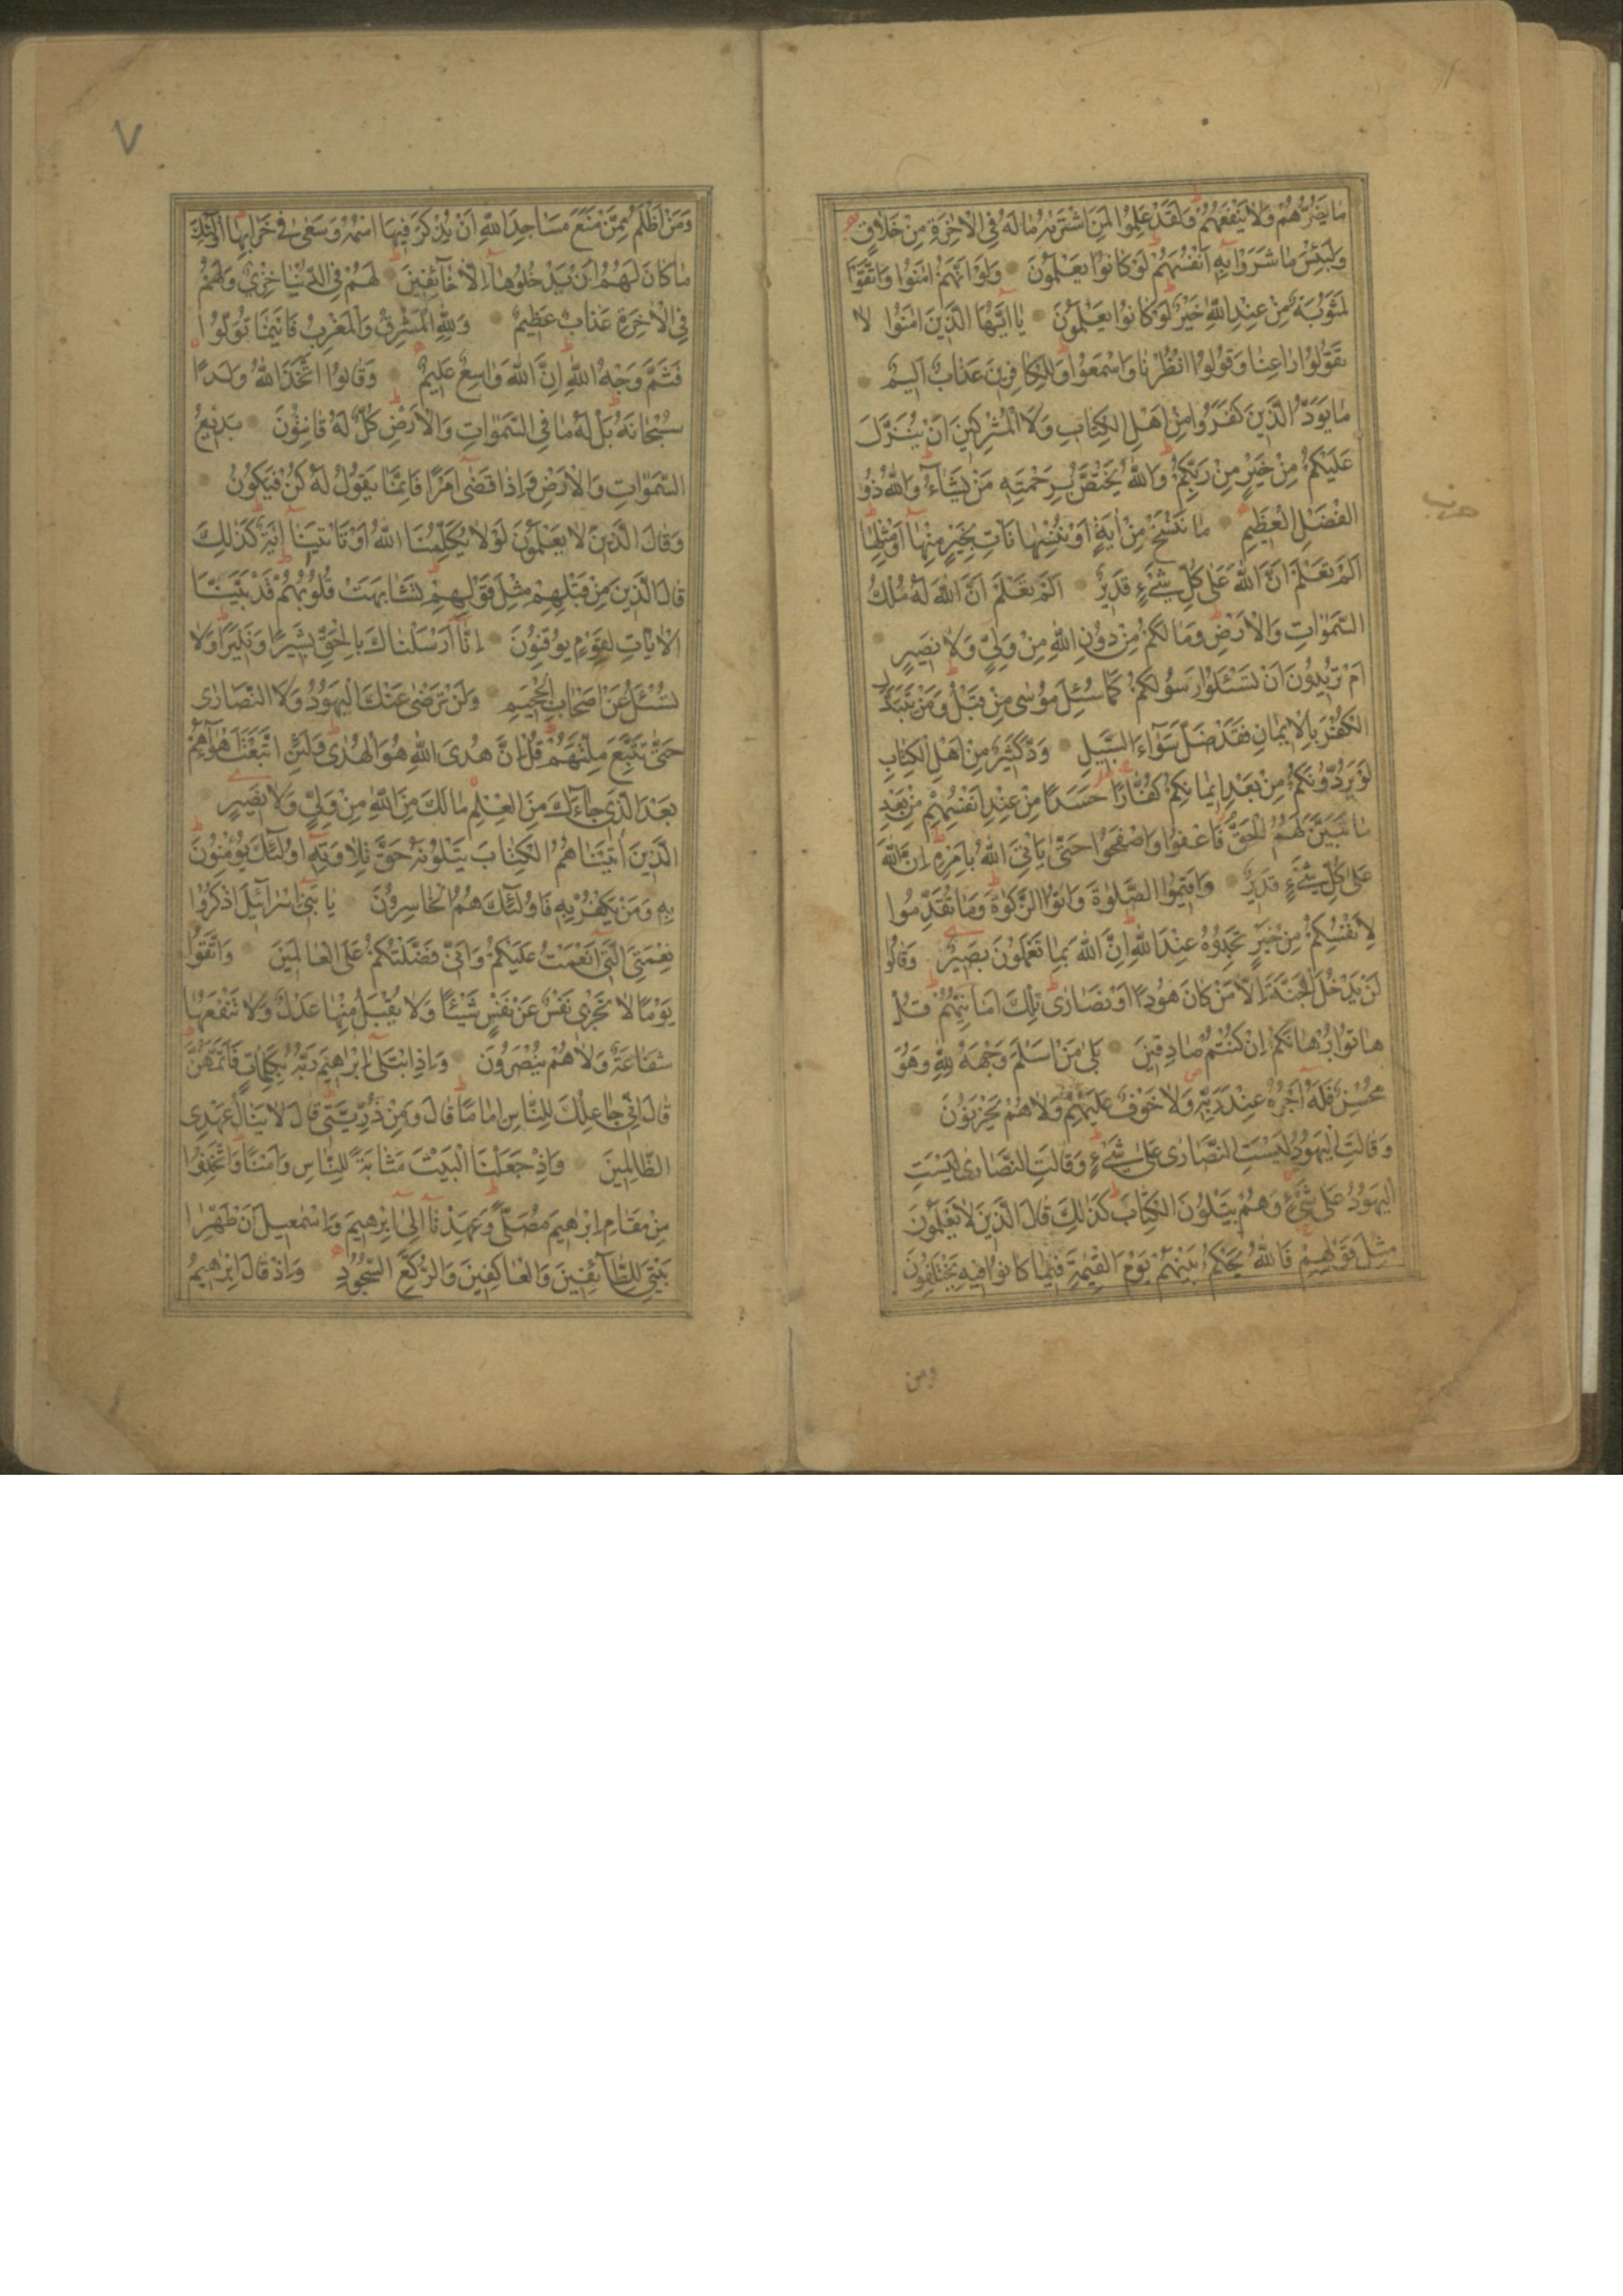 مَا يَضُرُّهُمْ وَلَا يَنْفَعُهُمْ وَلَقَدْ عَلِمُوا لَمَنِ اشْتَرٰيهُ مَا لَهُ فِي الْاٰخِرَةِ مِنْ خَلَاقٍ
وَلَبِئْسَ مَا شَرَوْا بِهِ اَنْفُسَهُمْ لَوْ كَانُوا يَعْلَمُونَ وَلَوْ اَنَّهُمْ اٰمَنُوا وَاتَّقَوْا
لَمَثُوبَةٌ مِنْ عِنْدِ اللّٰهِ خَيْرٌ لَوْ كَانُوا يَعْلَمُونَ يَا اَيُّهَا الَّذِينَ اٰمَنُوا لَا
تَقُولُوا رَاعِنَا وَقُولُوا انْظُرْنَا وَاسْمَعُوا وَلِلْكَافِرِينَ عَذَابٌ اَلِيمٌ
مَا يَوَدُّ الَّذِينَ كَفَرُوا مِنْ اَهْلِ الْكِتَابِ وَلَا الْمُشْرِكِينَ اَنْ يُنَزَّلَ
عَلَيْكُمْ مِنْ خَيْرٍ مِنْ رَبِّكُمْ وَاللّٰهُ يَخْتَصُّ بِرَحْمَتِهِ مَنْ يَشَآءُ وَاللّٰهُ ذُو
الْفَضْلِ الْعَظِيمِ مَا نَنْسَخْ مِنْ اٰيَةٍ اَوْ نُنْسِهَا نَأْتِ بِخَيْرٍ مِنْهَا اَوْ مِثْلِهَا
حزب
اَلَمْ تَعْلَمْ اَنَّ اللّٰهَ عَلٰى كُلِّ شَيْءٍ قَدِيرٌ اَلَمْ تَعْلَمْ اَنَّ اللّٰهَ لَهُ مُلْكُ
السَّمٰوَاتِ وَالْاَرْضِ وَمَا لَكُمْ مِنْ دُونِ اللّٰهِ مِنْ وَلِيٍّ وَلَا نَصِيرٍ
اَمْ تُرِيدُونَ اَنْ تَسْئَلُوا رَسُولَكُمْ كَمَا سُئِلَ مُوسٰى مِنْ قَبْلُ وَمَنْ يَتَبَدَّلِ
الْكُفْرَ بِالْاِيمَانِ فَقَدْ ضَلَّ سَوَآءَ السَّبِيلِ وَدَّ كَثِيرٌ مِنْ اَهْلِ الْكِتَابِ
لَوْ يَرُدُّونَكُمْ مِنْ بَعْدِ اِيمَانِكُمْ كُفَّارًا حَسَدًا مِنْ عِنْدِ اَنْفُسِهِمْ مِنْ بَعْدِ
مَا تَبَيَّنَ لَهُمُ الْحَقُّ فَاعْفُوا وَاصْفَحُوا حَتّٰى يَأْتِيَ اللّٰهُ بِاَمْرِهِ اِنَّ اللّٰهَ
عَلٰى كُلِّ شَيْءٍ قَدِيرٌ وَاَقِيمُوا الصَّلٰوةَ وَاٰتُوا الزَّكٰوةَ وَمَا تُقَدِّمُوا
لِاَنْفُسِكُمْ مِنْ خَيْرٍ تَجِدُوهُ عِنْدَ اللّٰهِ اِنَّ اللّٰهَ بِمَا تَعْمَلُونَ بَصِيرٌ وَقَالُوا
لَنْ يَدْخُلَ الْجَنَّةَ اِلَّا مَنْ كَانَ هُودًا اَوْ نَصَارٰى تِلْكَ اَمَانِيُّهُمْ قُلْ
هَاتُوا بُرْهَانَكُمْ اِنْ كُنْتُمْ صَادِقِينَ بَلٰى مَنْ اَسْلَمَ وَجْهَهُ لِلّٰهِ وَهُوَ
مُحْسِنٌ فَلَهُ اَجْرُهُ عِنْدَ رَبِّهِ وَلَا خَوْفٌ عَلَيْهِمْ وَلَا هُمْ يَحْزَنُونَ
وَقَالَتِ الْيَهُودُ لَيْسَتِ النَّصَارٰى عَلٰى شَيْءٍ وَقَالَتِ النَّصَارٰى لَيْسَتِ
الْيَهُودُ عَلٰى شَيْءٍ وَهُمْ يَتْلُونَ الْكِتَابَ كَذٰلِكَ قَالَ الَّذِينَ لَا يَعْلَمُونَ
مِثْلَ قَوْلِهِمْ فَاللّٰهُ يَحْكُمُ بَيْنَهُمْ يَوْمَ الْقِيٰمَةِ فِيمَا كَانُوا فِيهِ يَخْتَلِفُونَ
ومن
٧
وَمَنْ اَظْلَمُ مِمَّنْ مَنَعَ مَسَاجِدَ اللّٰهِ اَنْ يُذْكَرَ فِيهَا اسْمُهُ وَسَعٰى فِي خَرَابِهَا اُولٰئِكَ
مَا كَانَ لَهُمْ اَنْ يَدْخُلُوهَا اِلَّا خَآئِفِينَ لَهُمْ فِي الدُّنْيَا خِزْيٌ وَلَهُمْ
فِي الْاٰخِرَةِ عَذَابٌ عَظِيمٌ وَلِلّٰهِ الْمَشْرِقُ وَالْمَغْرِبُ فَاَيْنَمَا تُوَلُّوا
فَثَمَّ وَجْهُ اللّٰهِ اِنَّ اللّٰهَ وَاسِعٌ عَلِيمٌ وَقَالُوا اتَّخَذَ اللّٰهُ وَلَدًا
سُبْحَانَهُ بَلْ لَهُ مَا فِي السَّمٰوَاتِ وَالْاَرْضِ كُلٌّ لَهُ قَانِتُونَ بَدِيعُ
السَّمٰوَاتِ وَالْاَرْضِ وَاِذَا قَضٰى اَمْرًا فَاِنَّمَا يَقُولُ لَهُ كُنْ فَيَكُونُ
وَقَالَ الَّذِينَ لَا يَعْلَمُونَ لَوْلَا يُكَلِّمُنَا اللّٰهُ اَوْ تَأْتِينَا اٰيَةٌ كَذٰلِكَ
قَالَ الَّذِينَ مِنْ قَبْلِهِمْ مِثْلَ قَوْلِهِمْ تَشَابَهَتْ قُلُوبُهُمْ قَدْ بَيَّنَّا
الْاٰيَاتِ لِقَوْمٍ يُوقِنُونَ اِنَّا اَرْسَلْنَاكَ بِالْحَقِّ بَشِيرًا وَنَذِيرًا وَلَا
تُسْئَلُ عَنْ اَصْحَابِ الْجَحِيمِ وَلَنْ تَرْضٰى عَنْكَ الْيَهُودُ وَلَا النَّصَارٰى
حَتّٰى تَتَّبِعَ مِلَّتَهُمْ قُلْ اِنَّ هُدَى اللّٰهِ هُوَ الْهُدٰى وَلَئِنِ اتَّبَعْتَ اَهْوَآءَهُمْ
بَعْدَ الَّذِي جَآءَكَ مِنَ الْعِلْمِ مَا لَكَ مِنَ اللّٰهِ مِنْ وَلِيٍّ وَلَا نَصِيرٍ
الَّذِينَ اٰتَيْنَاهُمُ الْكِتَابَ يَتْلُونَهُ حَقَّ تِلَاوَتِهِ اُولٰئِكَ يُؤْمِنُونَ
بِهِ وَمَنْ يَكْفُرْ بِهِ فَاُولٰئِكَ هُمُ الْخَاسِرُونَ يَا بَنِي اِسْرَآئِيلَ اذْكُرُوا
نِعْمَتِيَ الَّتِي اَنْعَمْتُ عَلَيْكُمْ وَاَنِّي فَضَّلْتُكُمْ عَلَى الْعَالَمِينَ وَاتَّقُوا
يَوْمًا لَا تَجْزِي نَفْسٌ عَنْ نَفْسٍ شَيْئًا وَلَا يُقْبَلُ مِنْهَا عَدْلٌ وَلَا تَنْفَعُهَا
شَفَاعَةٌ وَلَا هُمْ يُنْصَرُونَ وَاِذِ ابْتَلٰى اِبْرٰهِيمَ رَبُّهُ بِكَلِمَاتٍ فَاَتَمَّهُنَّ
قَالَ اِنِّي جَاعِلُكَ لِلنَّاسِ اِمَامًا قَالَ وَمِنْ ذُرِّيَّتِي قَالَ لَا يَنَالُ عَهْدِي
الظَّالِمِينَ وَاِذْ جَعَلْنَا الْبَيْتَ مَثَابَةً لِلنَّاسِ وَاَمْنًا وَاتَّخِذُوا
مِنْ مَقَامِ اِبْرٰهِيمَ مُصَلًّى وَعَهِدْنَا اِلٰى اِبْرٰهِيمَ وَاِسْمٰعِيلَ اَنْ طَهِّرَا
بَيْتِيَ لِلطَّآئِفِينَ وَالْعَاكِفِينَ وَالرُّكَّعِ السُّجُودِ وَاِذْ قَالَ اِبْرٰهِيمُ